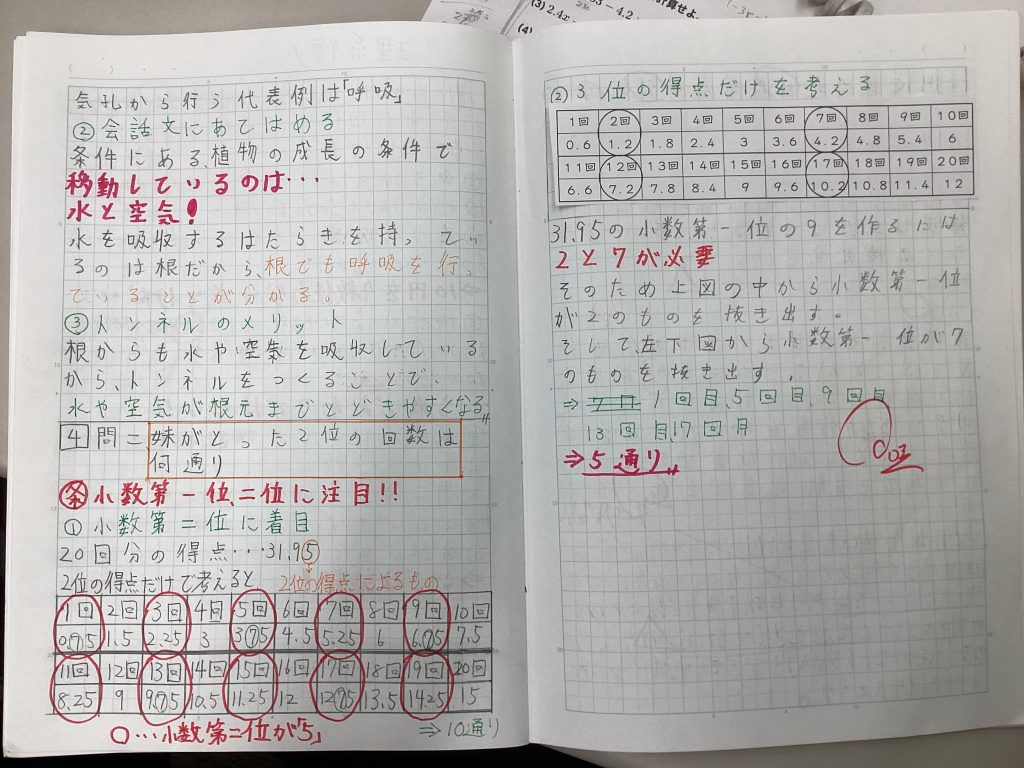 気孔から行う代表例は「呼吸」
②会話文にあてはめる
条件にある、植物の成長の条件で
移動しているのは・・・
水と空気!
水を吸収するはたらきを持ってい
るのは根だから、根でも呼吸を行っ
ていることが分かる。
③トンネルのメリット
根からも水や空気を吸収している
から、トンネルをつくることで、
水や空気が根元までとどきやすくなる
4 問=妹がとった2位の回数は
何通り
条 小数第一位、二位に注目!!
①小数第二位に着目
20回分の得点・・・31.95
2位の得点だけで考えると 2位の得点によるもの
1回 2回 3回 4回 5回 6回 7回 8回 9回 10回
0.75 1.5 2.25 3 3.75 4.5 5.25 6 6.75 7.5
11回 12回 13回 14回 15回 16回 17回 18回 19回 20回
8.25 9 9.75 10.5 11.25 12 12.75 13.5 14.25 15
○・・・小数第二位が「5」 ⇒10通り
(3) 2.4x
(4)
計算せよ。
②3位の得点だけを考える
1回 2回 3回 4回 5回 6回 7回 8回 9回 10回
0.6 1.2 1.8 2.4 3 3.6 4.2 4.8 5.4 6
11回 12回 13回 14回 15回 16回 17回 18回 19回 20回
6.6 7.2 7.8 8.4 9 9.6 10.2 10.8 11.4 12
31.95の小数第一位の9を作るには
2と7が必要
そのため上図の中から小数第一位
が2のものを抜き出す。
そして、左下図から、小数第一位が7
のものを抜き出す。
⇒ 1回目、5回目、9回目
13回目、17回目
⇒5通り